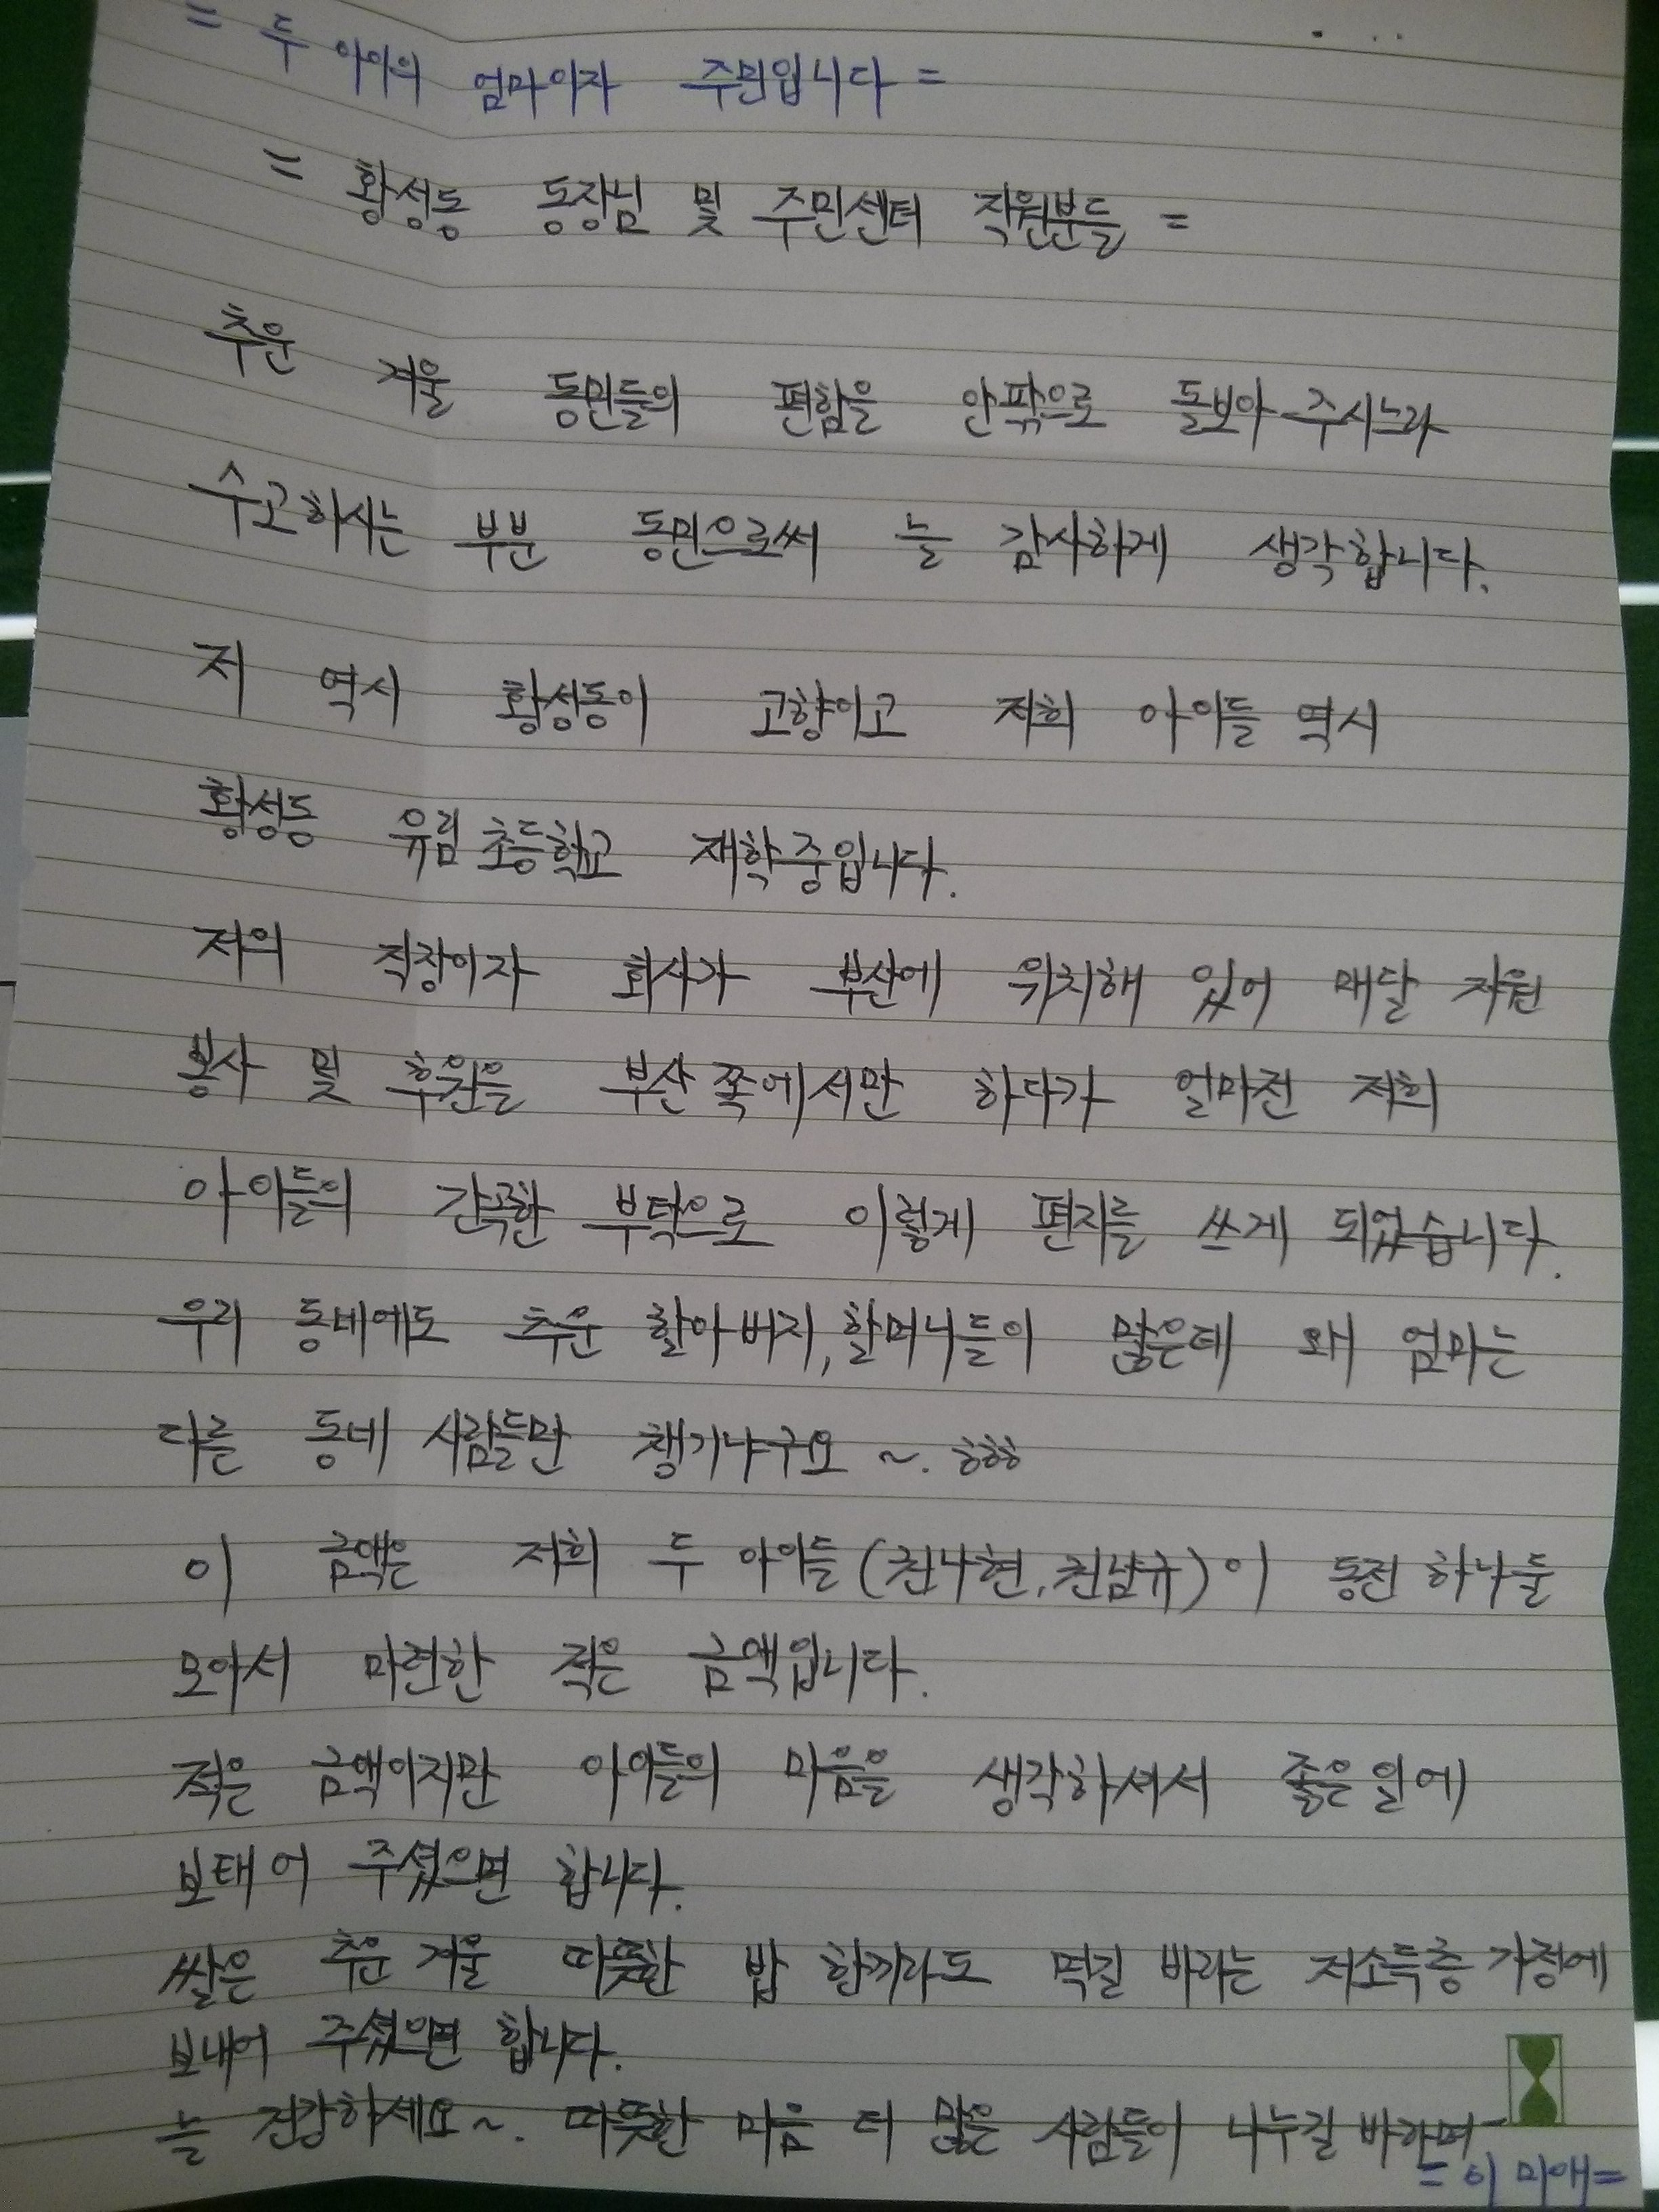 = 두 아이의 엄마이자 주민입니다 =
= 황성동 동장님 및 주민센터 직원분들 =
추운 겨울 동민들의 편함을 안팎으로 돌보아 주시느라
수고하시는 부분 동민으로써 늘 감사하게 생각합니다.
저 역시 황성동이 고향이고 저희 아이들 역시
황성동 유림초등학교 재학중입니다.
저의 직장이자 회사가 부산에 위치해 있어 매달 자원
봉사 및 후원을 부산쪽에서만 하다가 얼마전 저희
아이들의 간곡한 부탁으로 이렇게 편지를 쓰게 되었습니다.
우리 동네에도 추운 할아버지, 할머니들이 많은데 왜 엄마는
다른 동네 사람들만 챙기냐구요 ~. ㅎㅎㅎ
이 금액은 저희 두 아이들 (천나현, 천남규) 이 동전 하나둘
모아서 마련한 적은 금액입니다.
적은 금액이지만 아이들의 마음을 생각하셔서 좋은일에
보태어 주셨으면 합니다.
쌀은 추운 겨울 따뜻한 밥 한끼라도 먹길 바라는 저소득층 가정에
보내어 주셨으면 합니다.
늘 건강하세요~. 따뜻한 마음 더 많은 사람들이 나누길 바라며-
= 이 미애 =